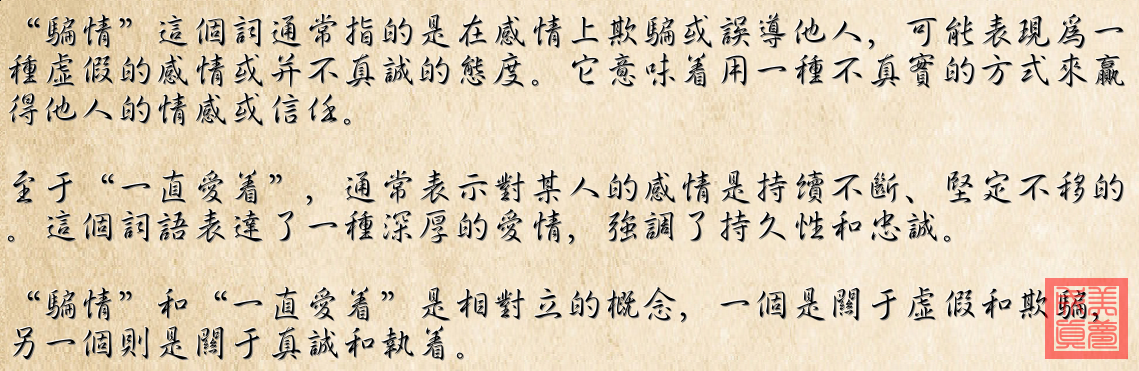 “騙情”這個詞通常指的是在感情上欺騙或誤導他人，可能表現爲一
種虛假的感情或并不真誠的態度。它意味着用一種不真實的方式來贏
得他人的情感或信任。
至于“一直愛着”，通常表示對某人的感情是持續不斷、堅定不移的
。這個詞語表達了一種深厚的愛情，強調了持久性和忠誠。
“騙情”和“一直愛着”是相對立的概念，一個是關于虛假和欺騙，
另一個則是關于真誠和執着。